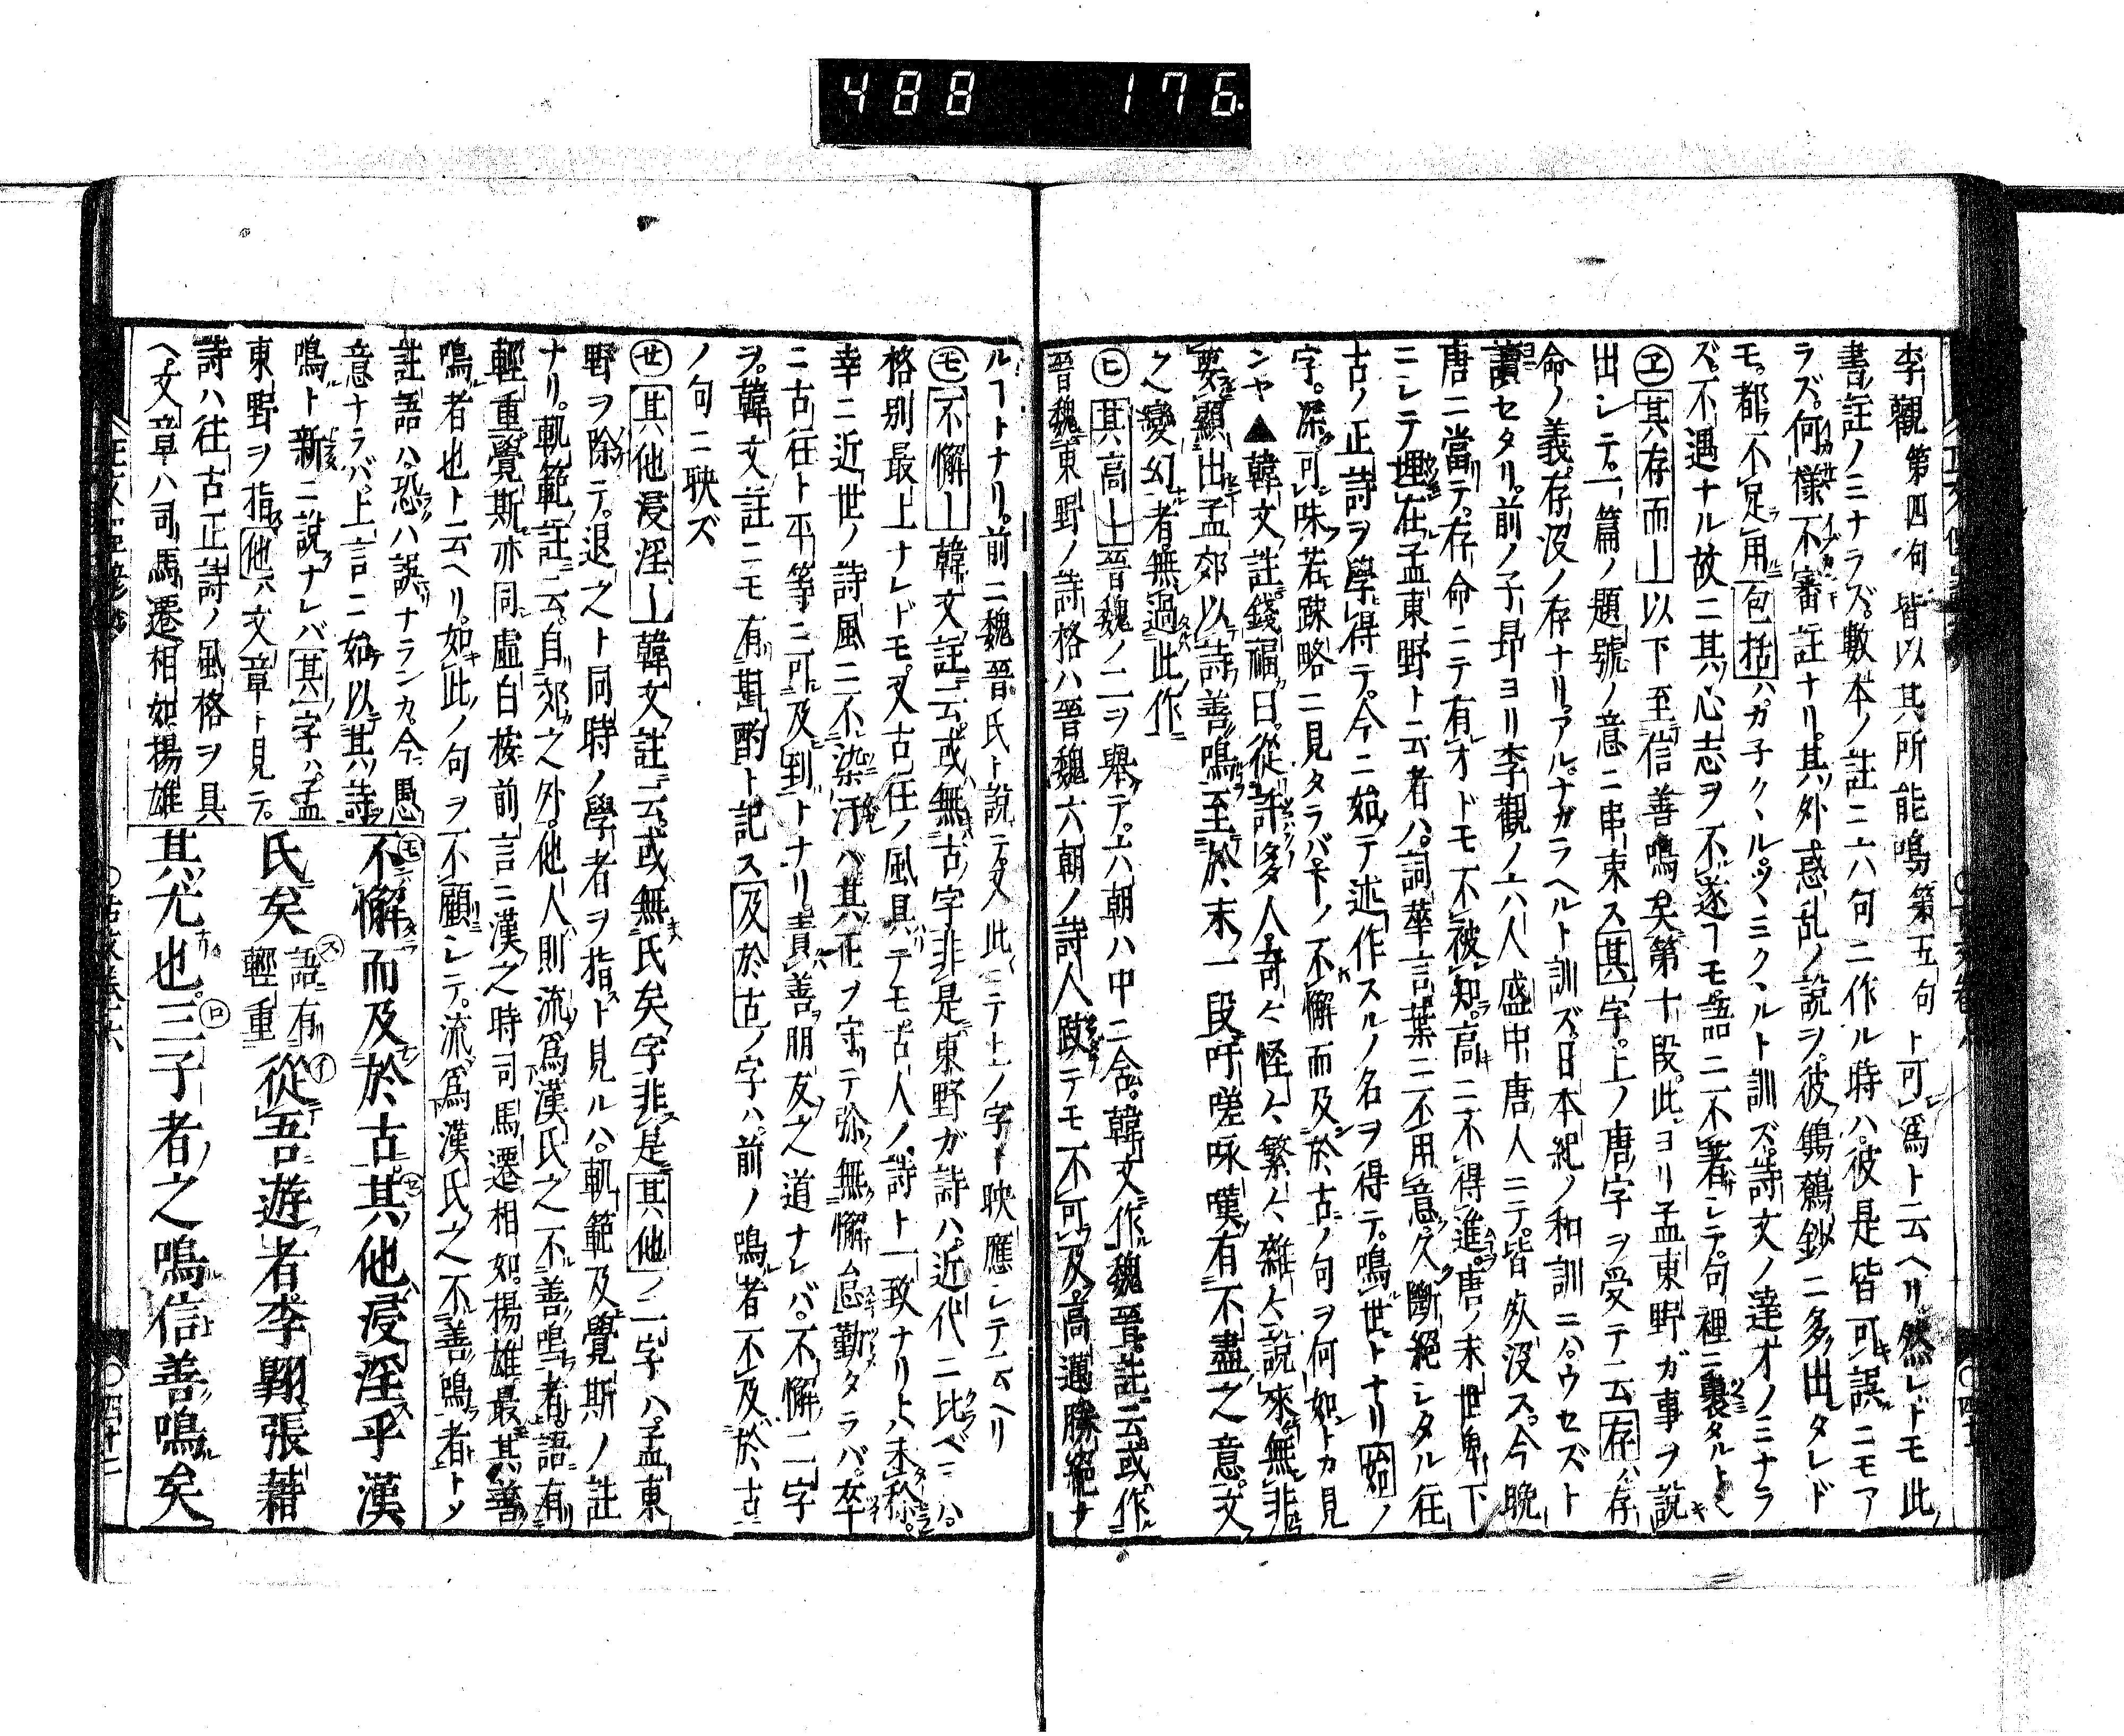 488 176
李觀第四句皆以其所能鳴第五句ト可爲ト云ヘリ然レドモ此
書註ノミナラズ數本ノ註ニ六句ニ作ル時ハ彼是皆可誤ニモア
ラズ何樣不審註ナリ其外惑乱ノ說ヲ彼鷦鷯鈔ニ多出タレド
モ都不足用包括ハガ子クヽルツヽミクヽルト訓ズ詩文ノ達才ノミナラ
ズ不遇ナル故ニ其心志ヲ不遂コモ語ニ不著シテ句裡ニ裹タルト
ヱ其存而以下至信善鳴矣第十段此ヨリ孟東野ガ事ヲ說
出シテ一篇ノ題號ノ意ニ串束ス其字上ノ唐字ヲ受テ云存ハ存
命ノ義存沒ノ存ナリアルナガラヘルト訓ズ日本紀ノ和訓ニハウセズト
讀セタリ前ノ子昂ヨリ李觀ノ六人盛中唐人ニテ皆死沒ス今晩
唐ニ當テ存命ニテ有才ドモ不被知高ニ不得進唐ノ末世卑下
ニシテ埋在孟東野ト云者ハ詞華言葉ニ不用意久斷絕シタル往
古ノ正詩ヲ學得テ今ニ始テ述作スルノ名ヲ得テ鳴世トナリ始ノ
字深可味若踈略ニ見タラバ下ノ不懈而及於古ノ句ヲ何如トカ見
ンヤ▲韓文註錢福曰從許多人奇々怪々繁々雜々說來無非
要顯出孟郊以詩善鳴至於末一段吁嗟咏嘆有不盡之意文
之變幻者無過此作
ヒ其高上晉魏ノ二ヲ舉テ六朝ハ中ニ含韓文作魏晉註云或作
晉魏東野ノ詩格ハ晉魏六朝ノ詩人跂テモ不可及高邁勝絕ナ
ルコトナリ前ニ魏晉氏ト說テ又此ニテ上ノ字ト映應シテ云ヘリ
モ不懈韓文註云或無古字非是東野ガ詩ハ近代ニ比ベニハ
格別最上ナレドモ又古往ノ風具テモ古人ノ詩ト一致ナリトハ未称
幸ニ近世ノ詩風ニ不染汚ハ其正ヲ守テ弥無懈怠勤タラバ卒
ニ古往ト平等ニ可及到トナリ責善朋友之道ナレバ不懈二字
ヲ韓文註ニモ有斟酌ト記ス及於古ノ字ハ前ノ鳴者不及於古
ノ句ニ映ズ
セ其他浸淫韓文註云或無氏矣字非是其他ノ二字ハ孟東
野ヲ除テ退之ト同時ノ學者ヲ指ト見ルハ軌範及覺斯ノ註
ナリ軌範註云自郊之外他人則流爲漢氏之不善鳴者語有
輕重覺斯亦同虛白按前言ニ漢之時司馬遷相如楊雄最其善
鳴者也ト云ヘリ如此ノ句ヲ不顧シテ流爲漢氏之不善鳴者トメ
註語ハ恐ハ誤ナランカ今愚
意ナラバ上言ニ如以其詩
鳴ト新ニ說ナレバ其字ハ孟
東野ヲ指他ハ文章ト見テ
詩ハ往古正詩ノ風格ヲ具
ヘ文章ハ司馬遷相如楊雄
不懈而及於古其他浸淫乎漢
氏矣語有輕重從吾遊者李翺張藉
其尤也三子者之鳴信善鳴矣